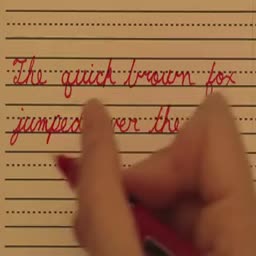 The quick brown fox
jumped over the